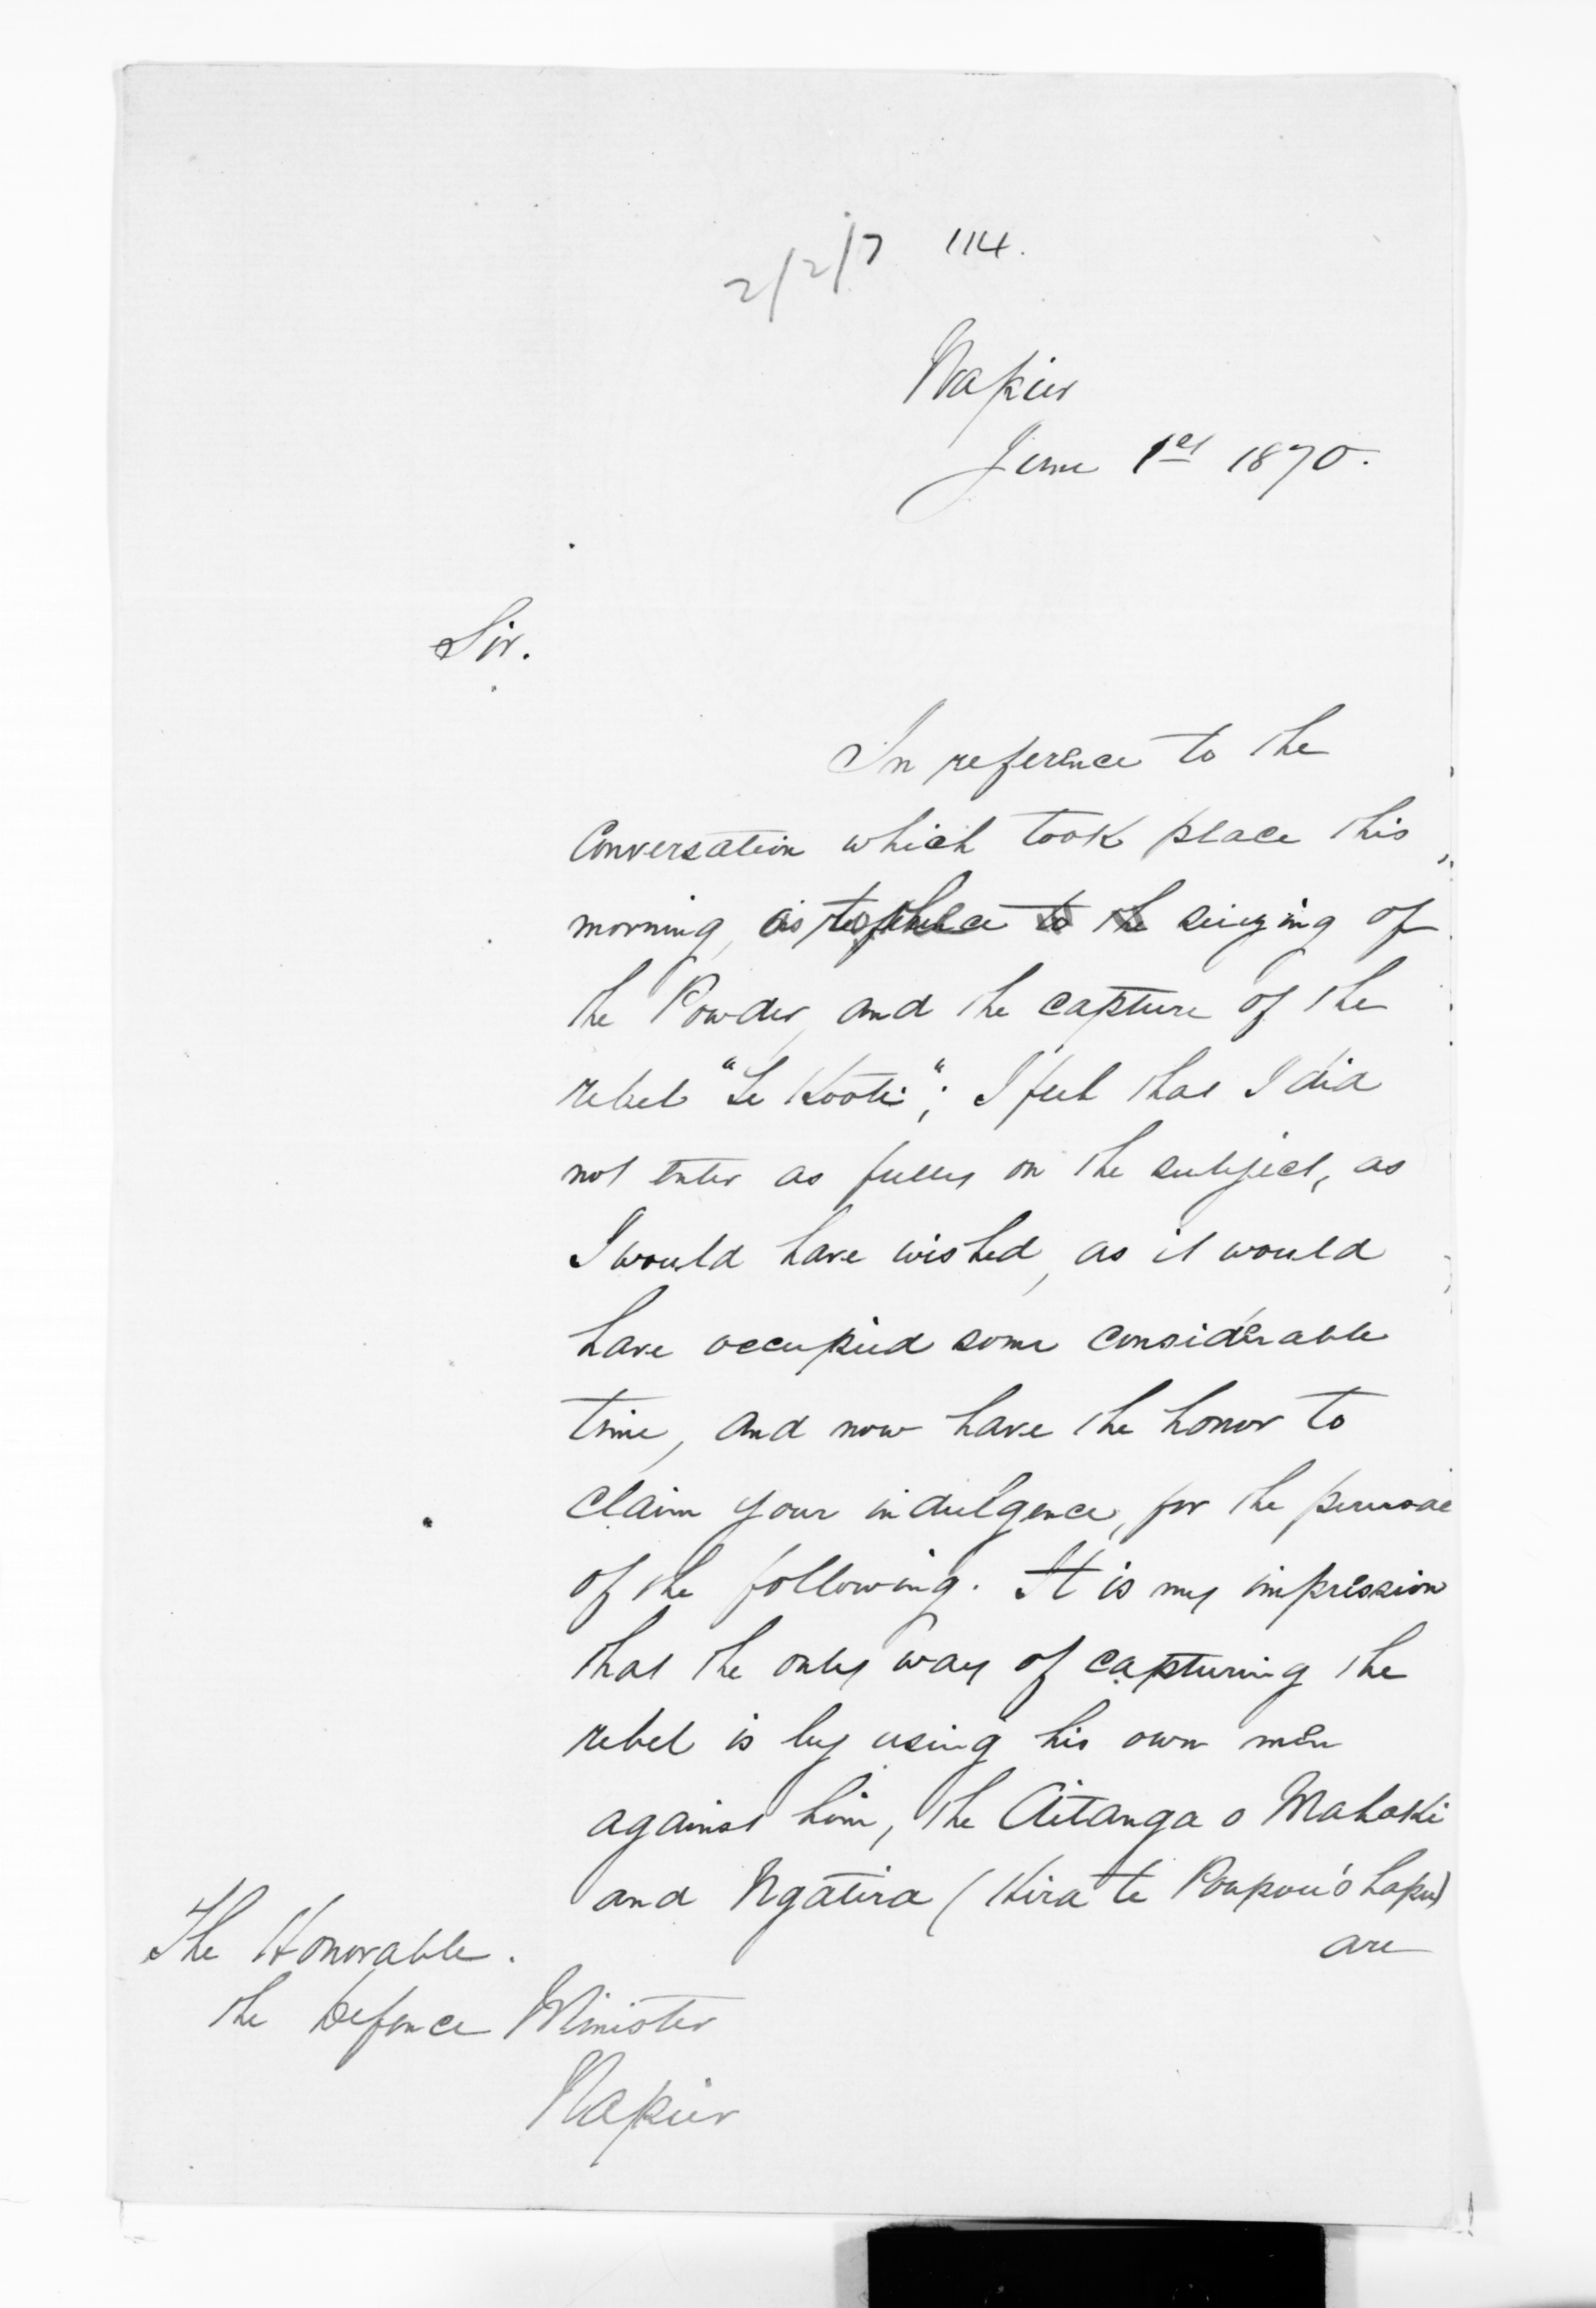 2/2/7 114.
Napier
June 1st 1870.
Sir.
In reference to the
Conversation which took place this
morning, as to the seizing of
the Powder, and the capture of the
rebel "Te Kooti"; I feel that I did
not enter as fully on the subject, as
I would have wished, as it would
have occupied some considerable
time, and now have the honor to
claim your indulgence, for the perusal
of the following. It is my impression
that the only way of capturing the
rebel is by using his own men
against him, the Aitanga o Mahaki
and Ngatira (Hira te Poupou's hapu)
are
The Honorable.
the Defence Minister
Napier